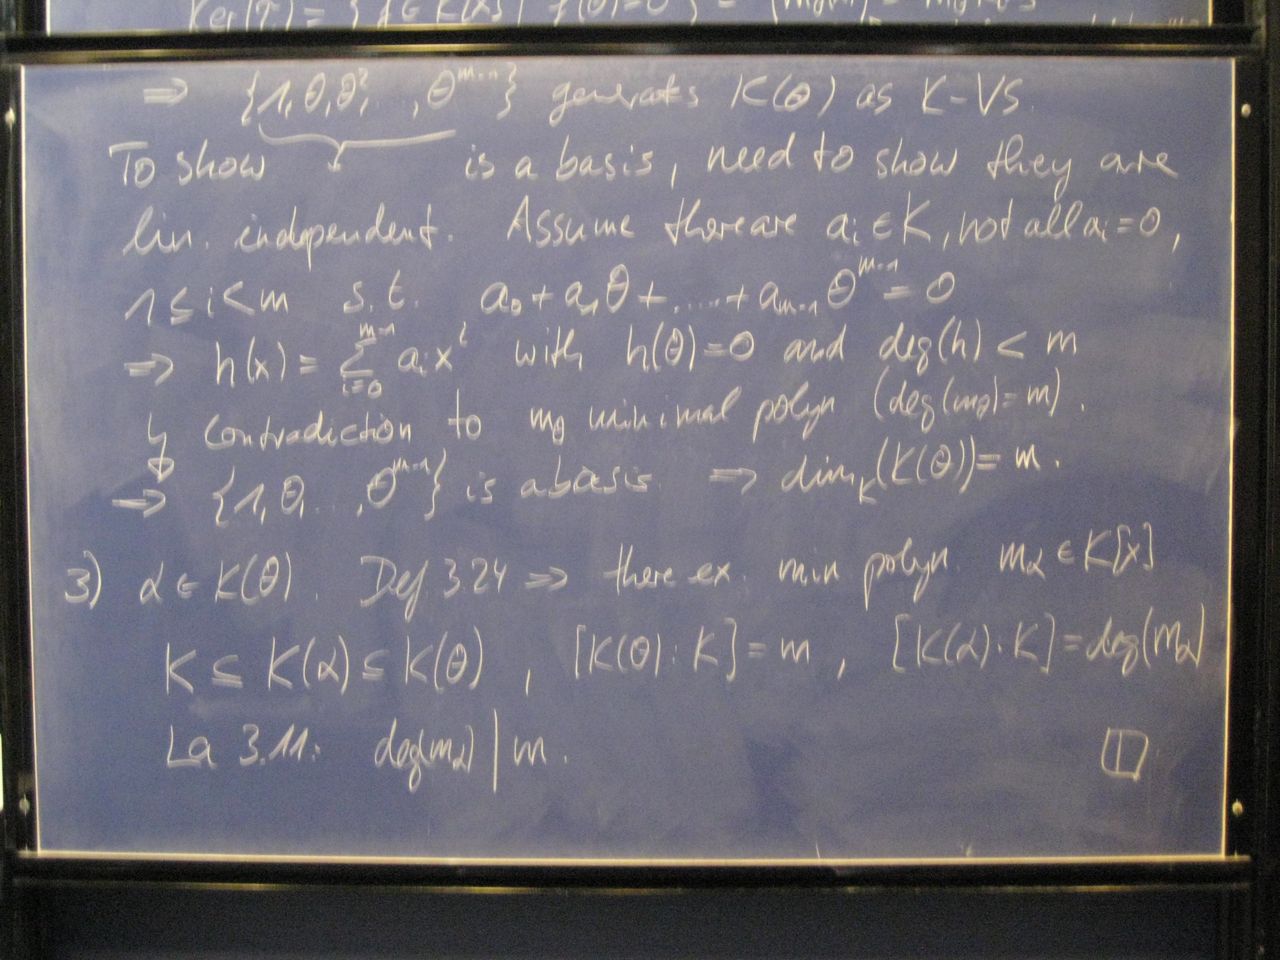 Ker(τ) = { f ∈ K[x] | f(θ)=0 } =
⇒ {1, θ, θ², , θ^{m-1}} generates K(θ) as K-VS.
To show is a basis, need to show they are
lin. independent. Assume there are a_i ∈ K, not all a_i = 0,
1 ≤ i < m s.t. a_0 + a_1 θ + ..... + a_{m-1} θ^{m-1} = 0
⇒ h(x) = ∑_{i=0}^{m-1} a_i x^i with h(θ)=0 and deg(h) < m
↯ contradiction to m_θ minimal polyn (deg(m_θ)=m).
⇒ {1, θ, ..., θ^{m-1}} is a basis. ⇒ dim_K(K(θ)) = m.
3) α ∈ K(θ). Def 3.24 ⇒ there ex. min polyn. m_α ∈ K[x]
K ≤ K(α) ≤ K(θ), [K(θ):K] = m, [K(α):K] = deg(m_α)
La 3.11: deg(m_α) | m.